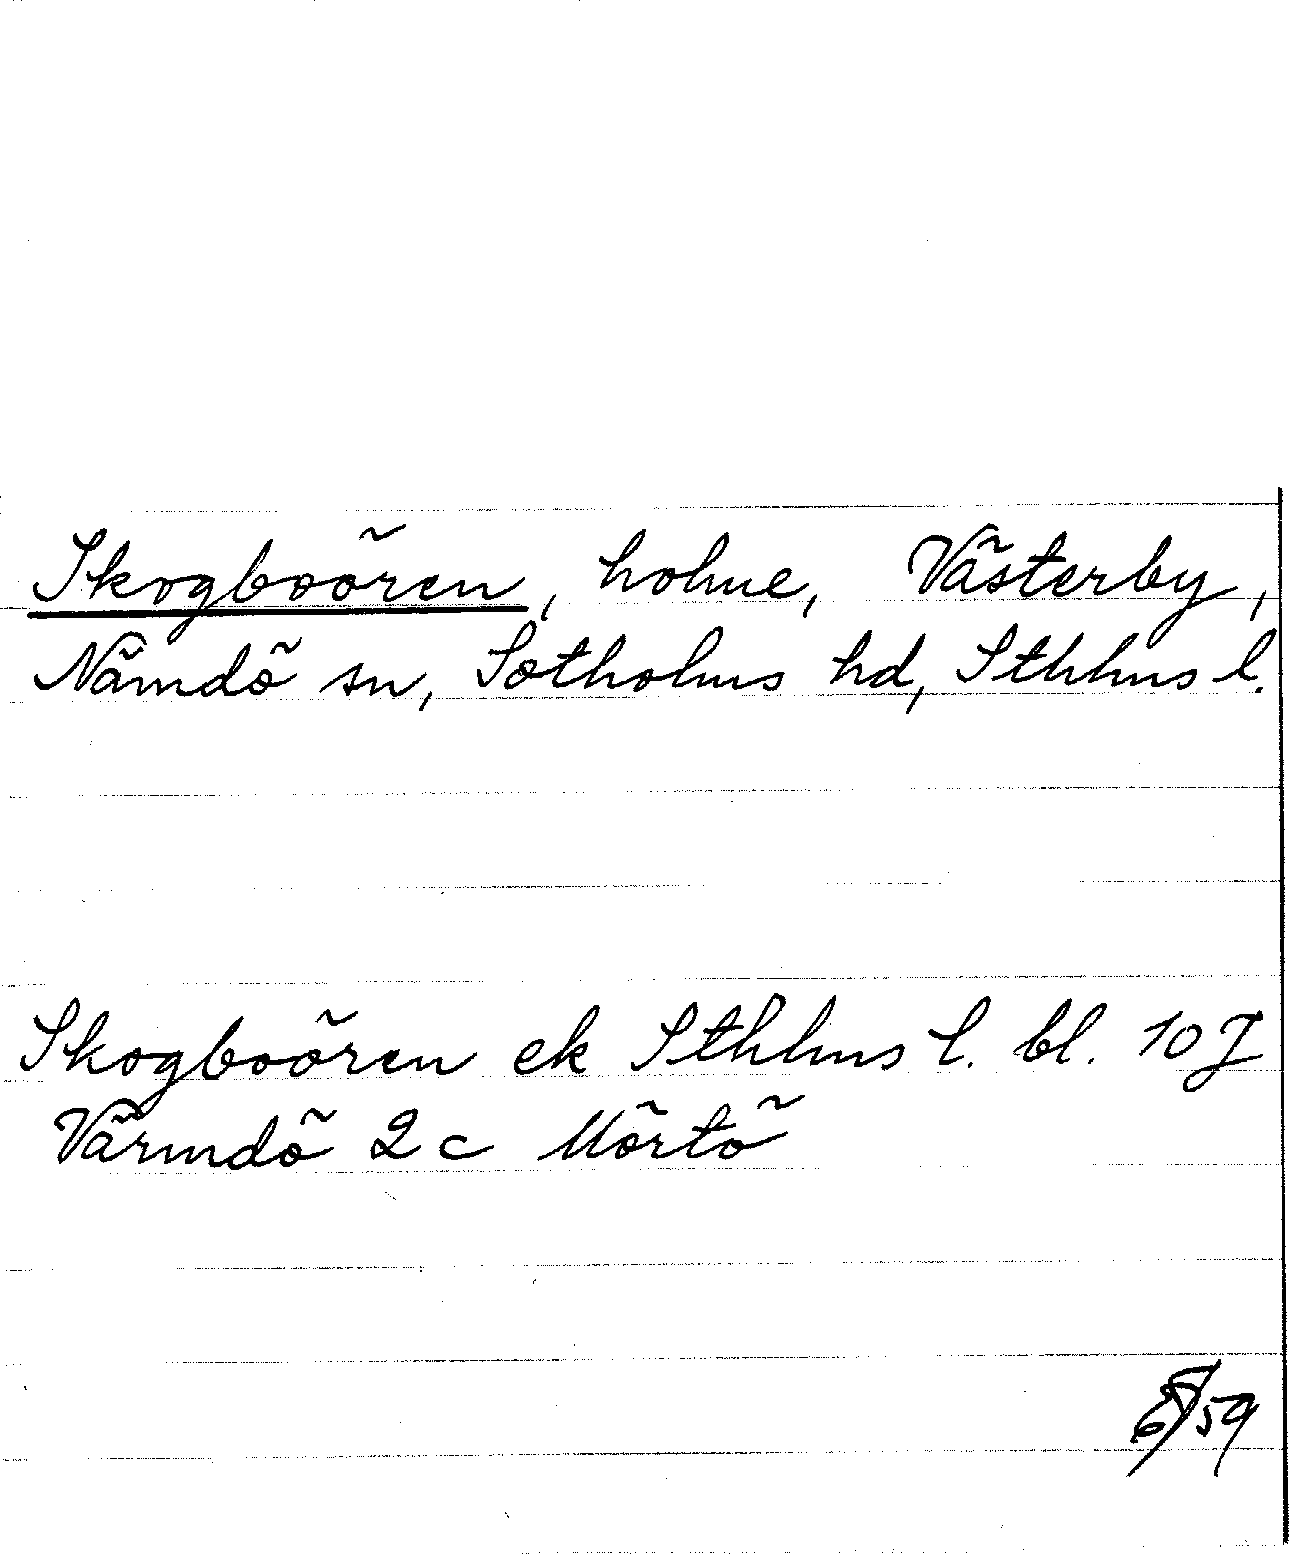 Skogboören, holme, Västerby,
Nämdö sn, Sotholms hd, Sthlms l.
Skogboören ek Sthlms l. bl. 10 J
Värmdö 2 c Mörtö